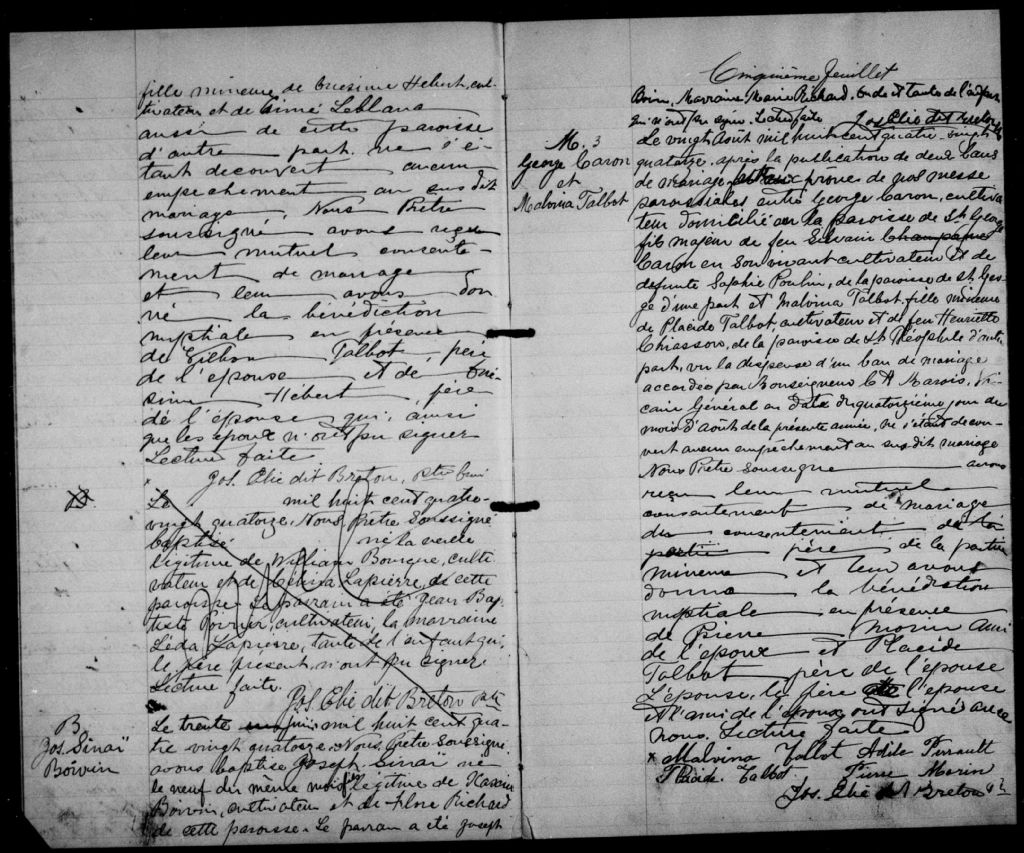 fille mineure de Onésime Hébert, cul-
tivateur et de Aimé Leblanc
aussi de cette paroisse
d'autre part. ne s'é-
tant decouvert aucun
empechement au susdit
mariage, Nous Prêtre
soussigné avons reçu
leur mutuel consente-
ment de mariage
et leur avons don
né la bénédiction
nuptiale en présence
de Talbot, père
de l'epouse et de Oné-
sime Hébert, père
de l'épouse qui, ainsi
que les époux n'ont pu signer
Lecture faite
Jos. Elie dit Breton, ptre
Le mil huit cent quatre-
vingt quatorze. Nous, Prêtre Soussigné
baptisé né la veille
légitime de William Bourque, culti
vateur et de Lapierre, de cette
paroisse. Le parrain a été Jean Bap
tiste Poirier, cultivateur, la marraine
Léda Lapierre, tante de l'enfant qui,
le père present, n'ont pu signer.
Lecture faite.
Jos. Elie dit Breton ptre
B
Jos. Sinaï
Boivin
Le trente juin mil huit cent qua-
tre vingt quatorze. Nous, Prêtre Soussigné
avons baptisé Joseph Sinaï né
le neuf du même mois légitime de
Boivin, cultivateur et de Richard
de cette paroisse. Le parrain a été Joseph
Cinquième feuillet
Boivin, Marraine Marie Richard, oncle et tante de l'enfant
qui n'ont pu signer. Lecture faite
Jos Elie dit Breton ptre
M. 3
George Caron
et
Malvina Talbot
Le vingt Août mil huit cent quatre-vingt
quatorze, après la publication de deux bans
de mariage prone de nos messe
paroissiales entre George Caron, cultiva
teur domicilié en la paroisse de St George
fils majeur de feu Silvain Champagne
Caron en son vivant cultivateur et de
defunte Sophie Poulin, de la paroisse de St Geor-
ge d'une part et Malvina Talbot, fille mineure
de Placide Talbot cultivateur et de feu Henriette
Chiasson, de la paroisse de St Théophile d'autre
part, vu la dispense d'un ban de mariage
accordée par Monseigneur C A Marois, Vi-
caire Général en date du quatorzième jour du
mois d'Août de la présente année, ne s'étant decou-
vert aucun empêchement au susdit mariage
Nous Prêtre Soussigné avons
reçu leur mutuel
consentement de mariage
du consentement de la
partie père de la partie
mineure et leur avons
donné la bénédiction
nuptiale en présence
de Pierre Morin ami
de l'époux et Placide
Talbot père de l'épouse
L'épouse, le père de l'épouse
et l'ami de l'époux ont signé avec
nous. Lecture faite
x Malvina Talbot Adèle Perrault
Placide Talbot Pierre Morin
Jos. Elie dit Breton ptre